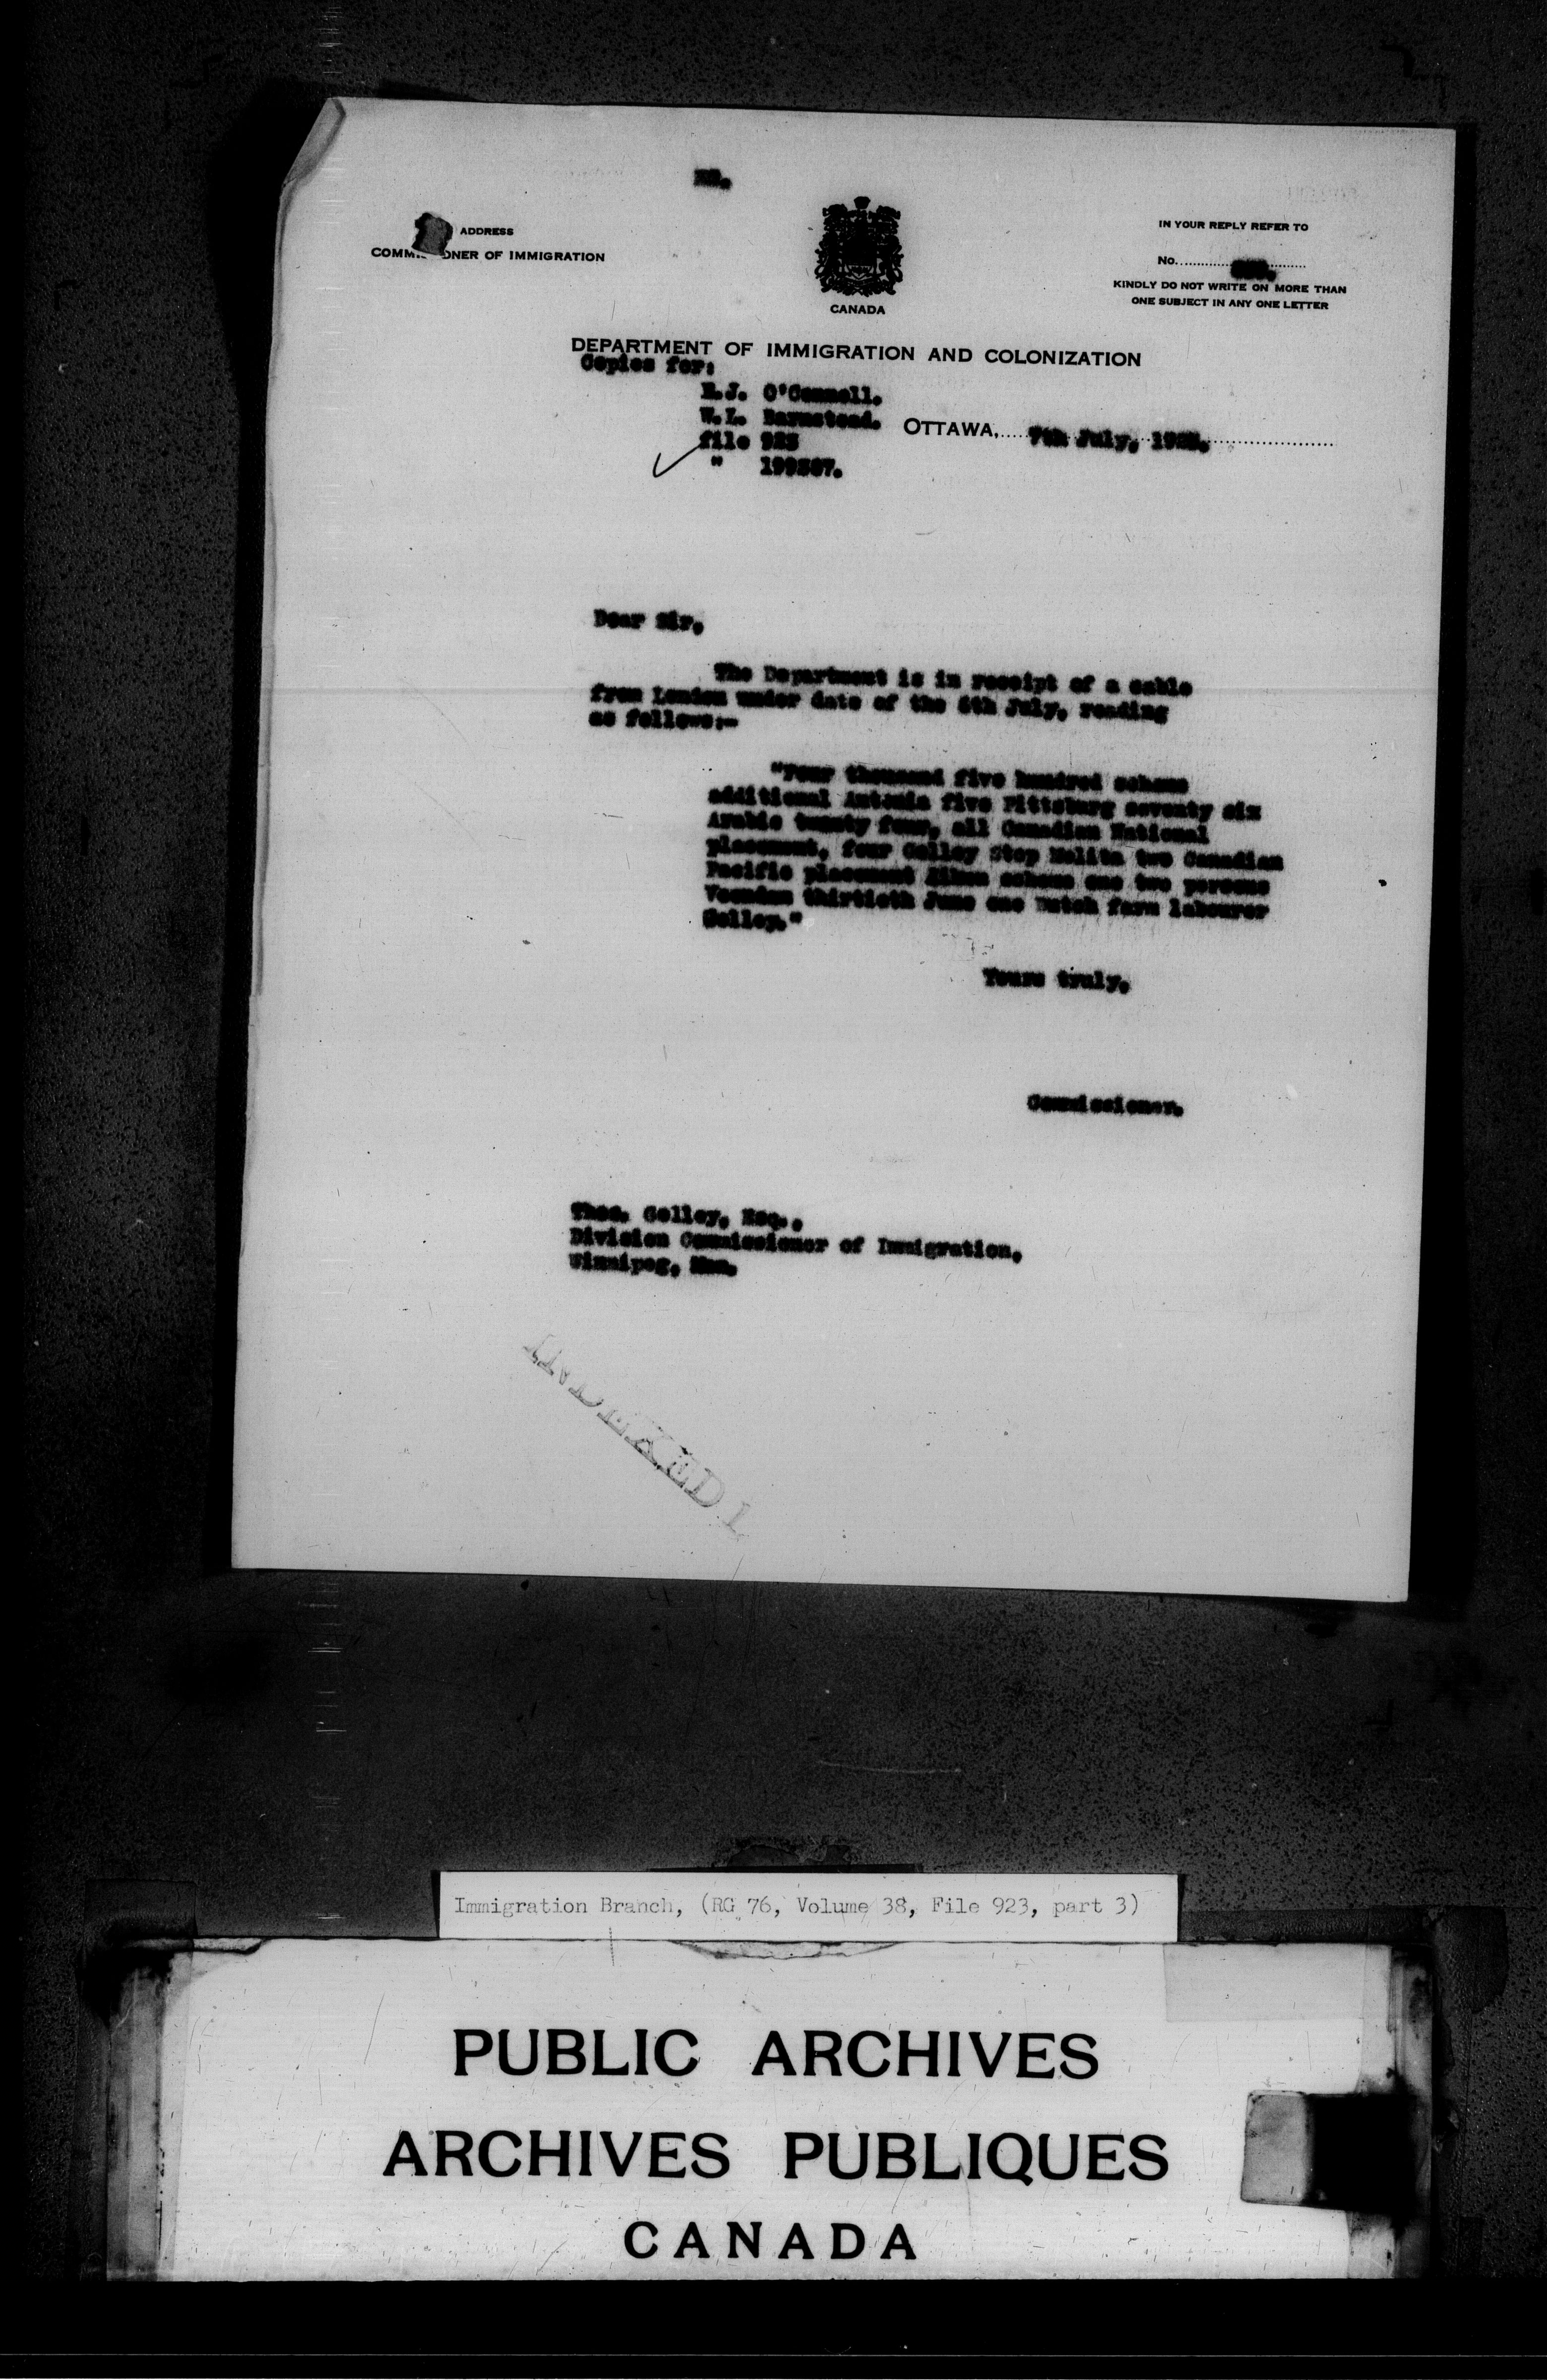 ADDRESS
COMM ONER OF IMMIGRATION
CANADA
IN YOUR REPLY REFER TO
No.
KINDLY DO NOT WRITE ON MORE THAN
ONE SUBJECT IN ANY ONE LETTER
DEPARTMENT OF IMMIGRATION AND COLONIZATION
Copies for:
O'Connell.
W.L. Barnstead.
file 923
" 199367.
OTTAWA, 7th July,
Dear Sir,
The Department is in receipt of a cable
from London under date of the 6th July, reading
as follows:-
"Four thousand five hundred scheme
additional Antonia five Pittsburg seventy six
Arabic twenty four, all Canadian National
placement, four Gelley Stop Melita two Canadian
Pacific placement scheme one two persons
Veendam thirtieth June one Dutch farm labourer
Gelley."
Yours truly,
Commissioner.
Thos. Gelley, Esq.,
Division Commissioner of Immigration,
Winnipeg, Man.
INDEXED
Immigration Branch, (RG 76, Volume 38, File 923, part 3)
PUBLIC ARCHIVES
ARCHIVES PUBLIQUES
CANADA